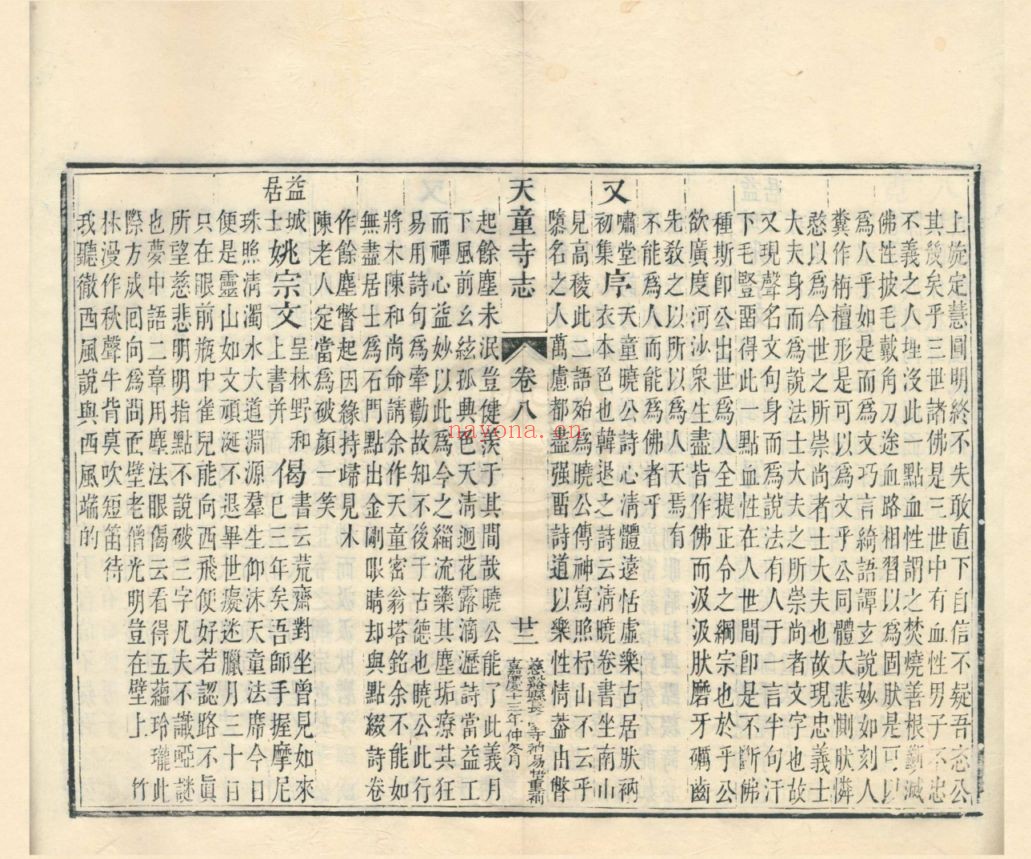 上旋定慧圓明終不失敢直下自信不疑吾悉公
其殁矣乎三世諸佛是三世中有血性男子不忠
不義之人埋沒此一點血性謂之焚燒善根斷滅
佛性披毛戴角刀途血路相習以爲固肰是可以
爲人乎如是而爲文巧言綺語譚玄說妙如刻人
糞作栴檀形是可以爲文乎公同體大悲惻肰憐
愍以爲今世之所崇尚者士大夫也故現忠義士
大夫身而爲說法士大夫之所崇尚者文字也故
又現聲名文句身而爲說法有人于一言半句汗
下毛豎畱得此一點血性在人世間卽是不斷佛
種斯卽公出世爲人全提正令之綱宗也於乎公
欲廣度河沙衆生盡皆作佛而汲汲肰磨牙礪齒
先敎之以所以爲人天焉有
不能爲人而能爲佛者乎
又　嘯堂序天童曉公詩心淸體遠恬虛樂古居肰衲
初集　衣本色也韓退之詩云淸曉卷書坐南山
見高稜此二語始爲曉公傳神寫照杼山不云乎
隳名之人萬慮都盡强畱詩道以樂性情葢出瞥
天童寺志　卷八　廿二　慈谿縣長　寺衲易　重補
嘉慶十三年仲冬月
起餘塵未泯豈健羨于其間哉曉公能了此義月
下風前幺絃孤典色天淸迥花露滴瀝詩當益工
而禪心益妙以此爲今之緇流藥其塵垢療其狂
易用詩句爲牽勸故知不後于古德也曉公此行
將木陳和尚命請余作天童密翁塔銘余不能如
無盡居士爲石門點出金剛眼睛却與點綴詩卷
作餘塵瞥起因緣持歸見木
陳老人定當爲破顏一笑
益城　姚宗文上書并偈書云荒齋對坐曾見如來
居士　呈林野和　巳三年矣吾師手握摩尼
珠照淸濁水大道淵源羣生仰沫天童法席今日
便是靈山如文頑涎不退畢世癡迷臘月三十日
只在眼前瓶中雀兒能向西飛便好若認路不眞
所望慈悲明明指點不說破三字凡夫不識啞謎
也夢中語二章用塵法眼偈云看得五蘊玲瓏此
際方成囘向回而壁老僧光明豈在壁上　竹
林漫作秋聲牛背莫吹短笛待
我聽徹西風說與西風端的
nayona.cn